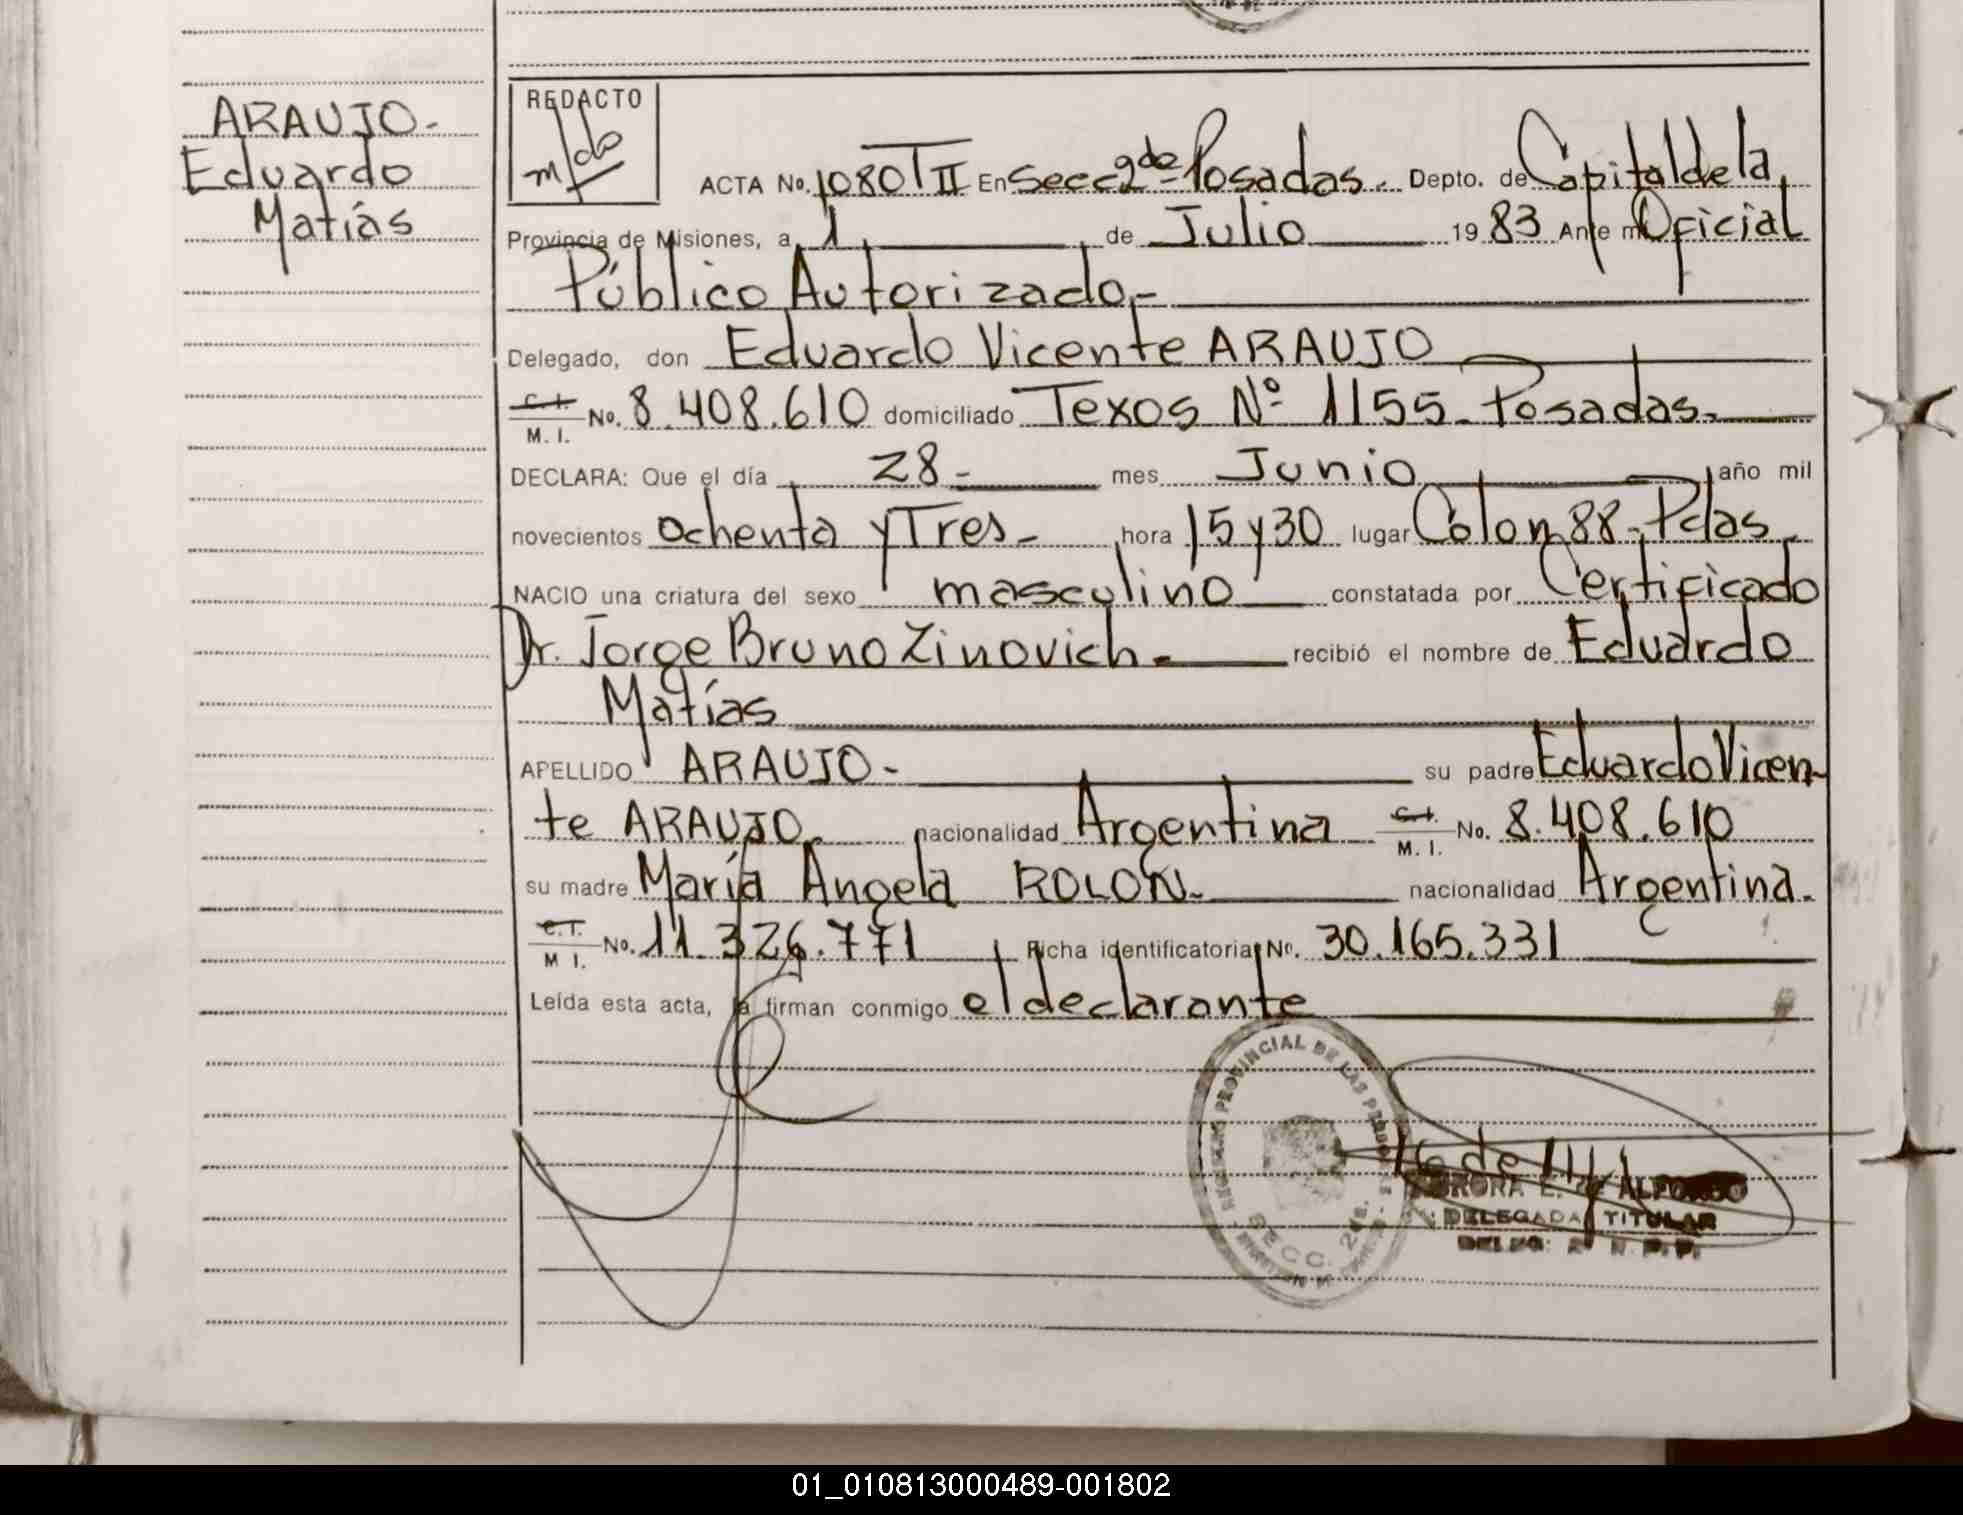 ARAUJO.
Eduardo
Matías
REDACTO
ACTA No. 1080 T II En Secc 2da Posadas. Depto. de Capital de la
Provincia de Misiones, a 1 de Julio 19 83 Ante mi Oficial
Público Autorizado.-
Delegado, don Eduardo Vicente ARAUJO
C.I.
M. I. No. 8.408.610 domiciliado Texos Nº 1155. Posadas.
DECLARA: Que el día 28- mes Junio año mil
novecientos ochenta y Tres- hora 15 y 30 lugar Colon 88- Pdas.
NACIO una criatura del sexo masculino constatada por Certificado
Dr. Jorge Bruno Zinovich. recibió el nombre de Eduardo
Matías
APELLIDO ARAUJO- su padre Eduardo Vicen-
te ARAUJO. nacionalidad Argentina C.I.
M. I. No. 8.408.610
su madre María Angela ROLON- nacionalidad Argentina.
C.I.
M I. No. 11.326.771 Ficha identificatoria No. 30.165.331
Leída esta acta, la firman conmigo el declarante
PROVINCIAL DE LAS
SECC. 2da.
DELEGADA TITULAR
01_010813000489-001802